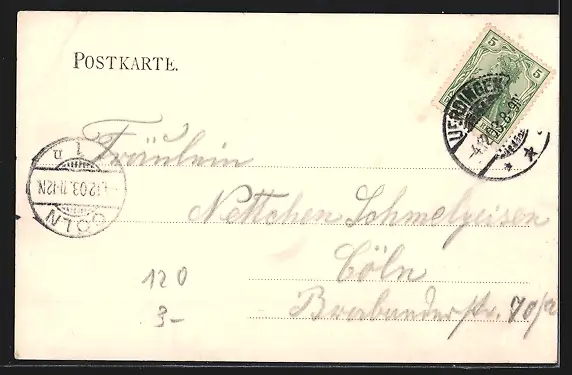 POSTKARTE.
5 5
UERDINGEN
Fräulein
CÖLN
1 n
12.03. 11-12N.
Nettchen Schmelzeisen
Cöln
Brabanderstr. 70
120
3-